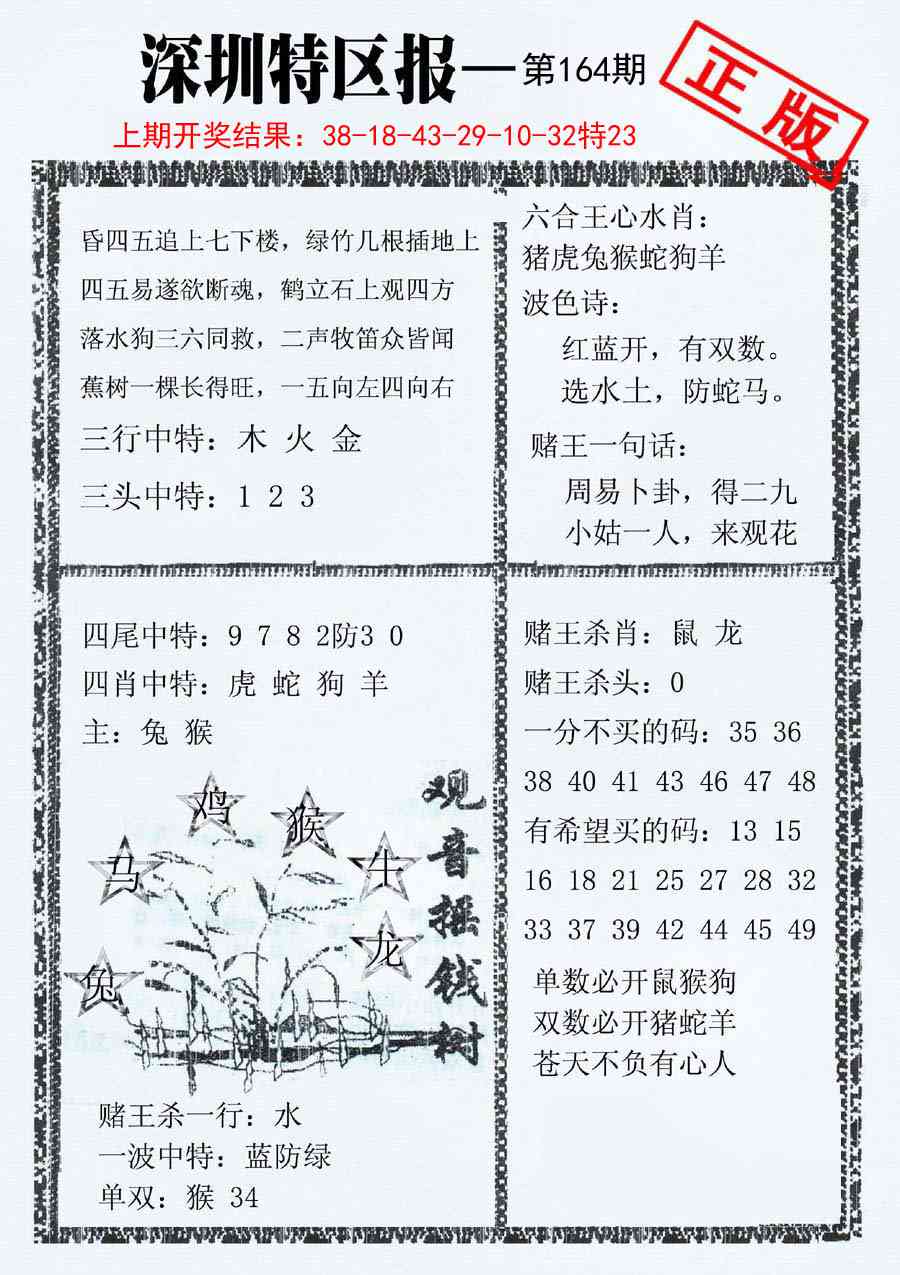 深圳特区报—第164期
正版
上期开奖结果：38-18-43-29-10-32特23
昏四五追上七下楼，绿竹几根插地上
四五易遂欲断魂，鹤立石上观四方
落水狗三六同救，二声牧笛众皆闻
蕉树一棵长得旺，一五向左四向右
三行中特：木 火 金
三头中特：1 2 3
六合王心水肖：
猪虎兔猴蛇狗羊
波色诗：
红蓝开，有双数。
选水土，防蛇马。
赌王一句话：
周易卜卦，得二九
小姑一人，来观花
四尾中特：9 7 8 2防3 0
四肖中特：虎 蛇 狗 羊
主：兔 猴
鸡
猴
马
牛
龙
兔
观音摇钱树
赌王杀一行：水
一波中特：蓝防绿
单双：猴 34
赌王杀肖：鼠 龙
赌王杀头：0
一分不买的码：35 36
38 40 41 43 46 47 48
有希望买的码：13 15
16 18 21 25 27 28 32
33 37 39 42 44 45 49
单数必开鼠猴狗
双数必开猪蛇羊
苍天不负有心人